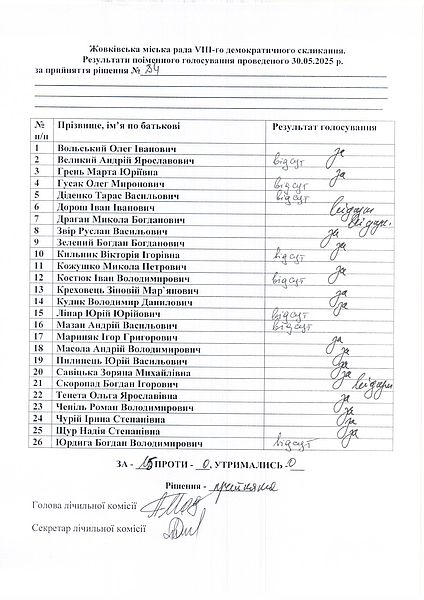 Жовківська міська рада VIII-го демократичного скликання.
Результати поіменного голосування проведеного 30.05.2025 р.
за прийняття рішення № 34
№ п/п Прізвище, ім’я по батькові Результат голосування
1 Вольський Олег Іванович за
2 Великий Андрій Ярославович відсут
3 Грень Марта Юріївна за
4 Гусак Олег Миронович відсут
5 Діденко Тарас Васильович відсут
6 Дорош Іван Іванович відсут
7 Драган Микола Богданович відсут.
8 Звір Руслан Васильович за
9 Зелений Богдан Богданович за
10 Кильник Вікторія Ігорівна відсут
11 Кожушко Микола Петрович за
12 Костюк Іван Володимирович відсут
13 Креховець Зіновій Мар`янович за
14 Кудик Володимир Данилович за
15 Ліпар Юрій Юрійович відсут
16 Мазан Андрій Васильович відсут
17 Мариняк Ігор Григорович за
18 Масола Андрій Володимирович за
19 Пилипець Юрій Васильович за
20 Савіцька Зоряна Михайлівна за
21 Скоропад Богдан Ігорович відсут
22 Тенета Ольга Ярославівна за
23 Чепіль Роман Володимирович за
24 Чурій Ірина Степанівна за
25 Щур Надія Степанівна за
26 Юрдига Богдан Володимирович відсут
ЗА - 15 ПРОТИ - 0, УТРИМАЛИСЬ 0
Рішення - прийняте
Голова лічильної комісії
Секретар лічильної комісії